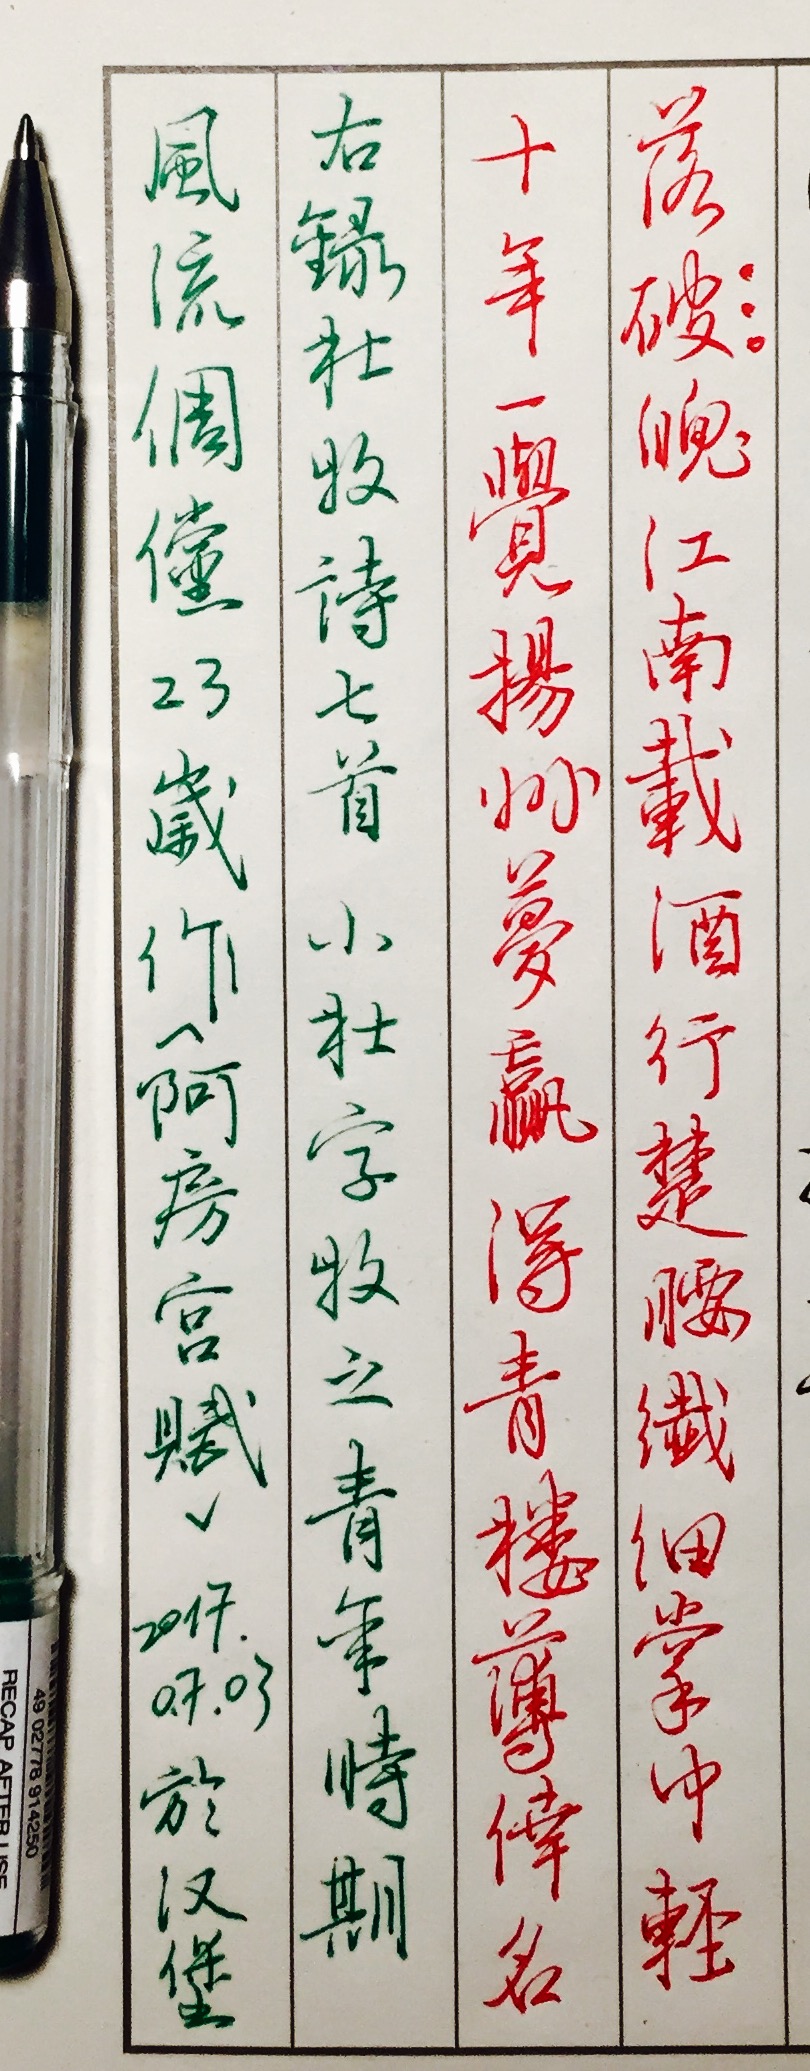 落破魄江南載酒行楚腰纖細掌中軽
十年一覺揚州夢贏得青樓薄倖名
右録杜牧詩七首 小杜字牧之青年時期
風流倜儻23歲作〈阿房宮賦〉 2017.07.03 於汉堡
49 02778 914250
RECAP AFTER USE